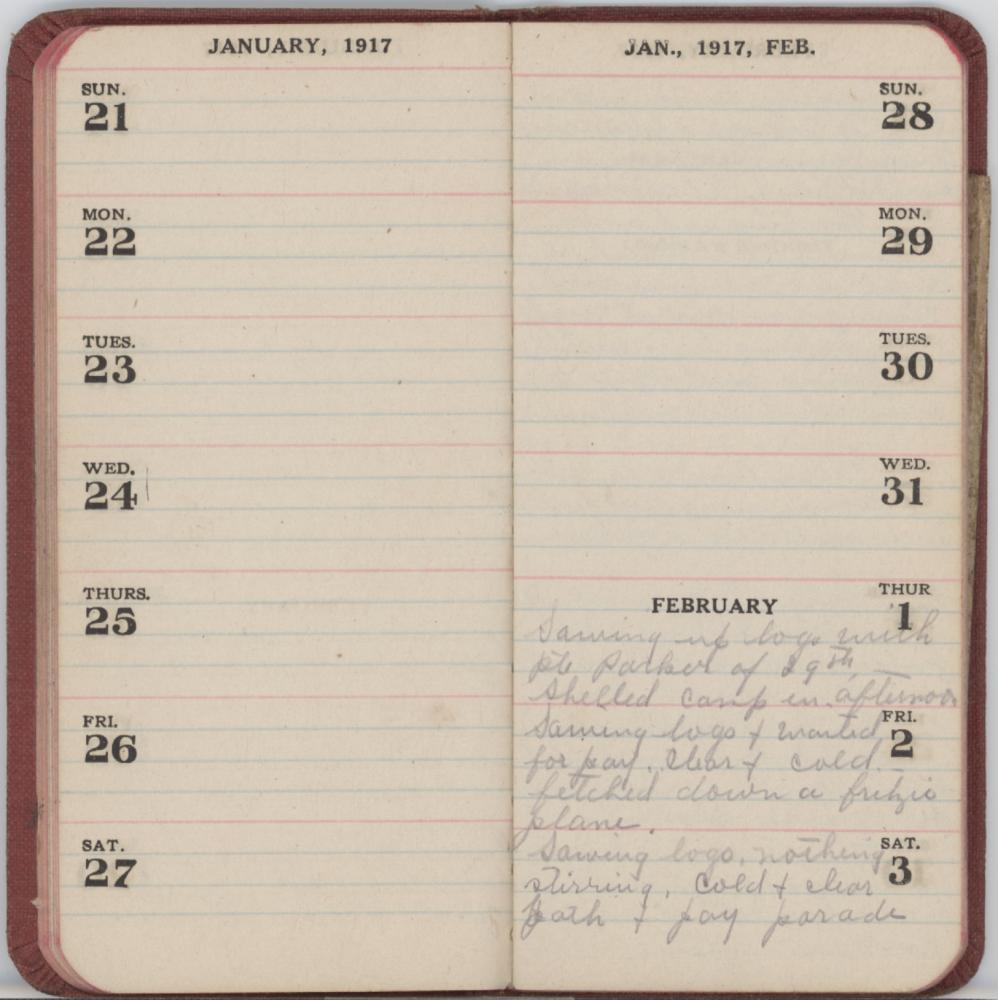 JANUARY, 1917
SUN.
21
MON.
22
TUES.
23
WED.
24
THURS.
25
FRI.
26
SAT.
27
JAN., 1917, FEB.
SUN.
28
MON.
29
TUES.
30
WED.
31
FEBRUARY
THUR
1
Sawing up logs with
pte Parker of 29th
Shelled camp in afternoon
FRI.
2
Sawing logs + waited
for pay. Clear + cold
fetched down a fritzie
plane.
SAT.
3
Sawing logs, nothing
stirring, cold + clear
Bath + pay parade